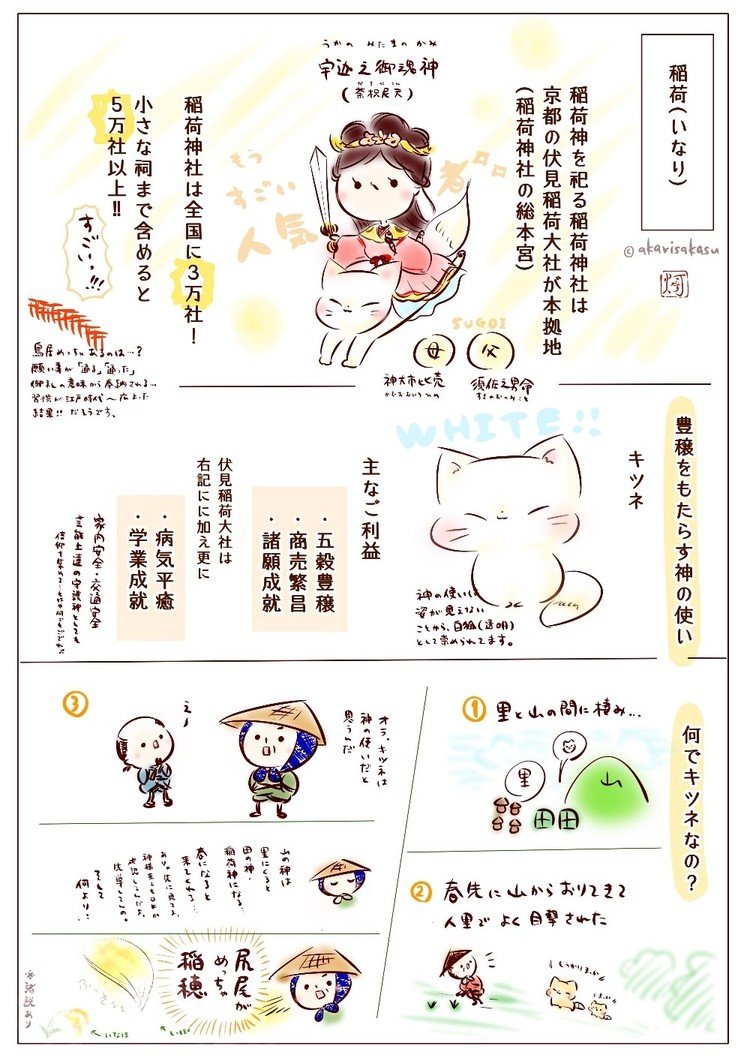 稲荷(いなり)
© akarisakasu
稲荷神を祀る稲荷神社は
京都の伏見稲荷大社が本拠地
(稲荷神社の総本宮)
うかの みたまのかみ
宇迦之御魂神
(荼枳尼天)
もう
すごい
人気
者
SUGOI
父
須佐之男命
すさのおのみこと
母
神大市比売
稲荷神社は全国に3万社!
小さな祠まで含めると
5万社以上!!
すごいっ!!!
鳥居めっちゃあるのは…?
願い事が「通る」「通った」
御礼の意味から奉納される…
習慣が江戸時代〜広まった
結果!! だそうです。
豊穣をもたらす神の使い
キツネ
WHITE!!
神の使いは
姿が見えない
ことから、白狐(透明)
として崇められてます。
主なご利益
・五穀豊穣
・商売繁昌
・諸願成就
伏見稲荷大社は
右記にに加え更に
・病気平癒
・学業成就
家内安全・交通安全
芸能上達の守護神としても
何でキツネなの?
①里と山の間に棲み…
里
山
田田
②春先に山からおりてきて
人里でよく目撃された
③
オラ、キツネは
神の使いだと
思うんだ
え〜
山の神は
里にくると
田の神、
稲荷神になる…
春になると
来てくれる…
そして
何より…
尻尾が
めっちゃ
稲穂
←いなほ
※諸説あり